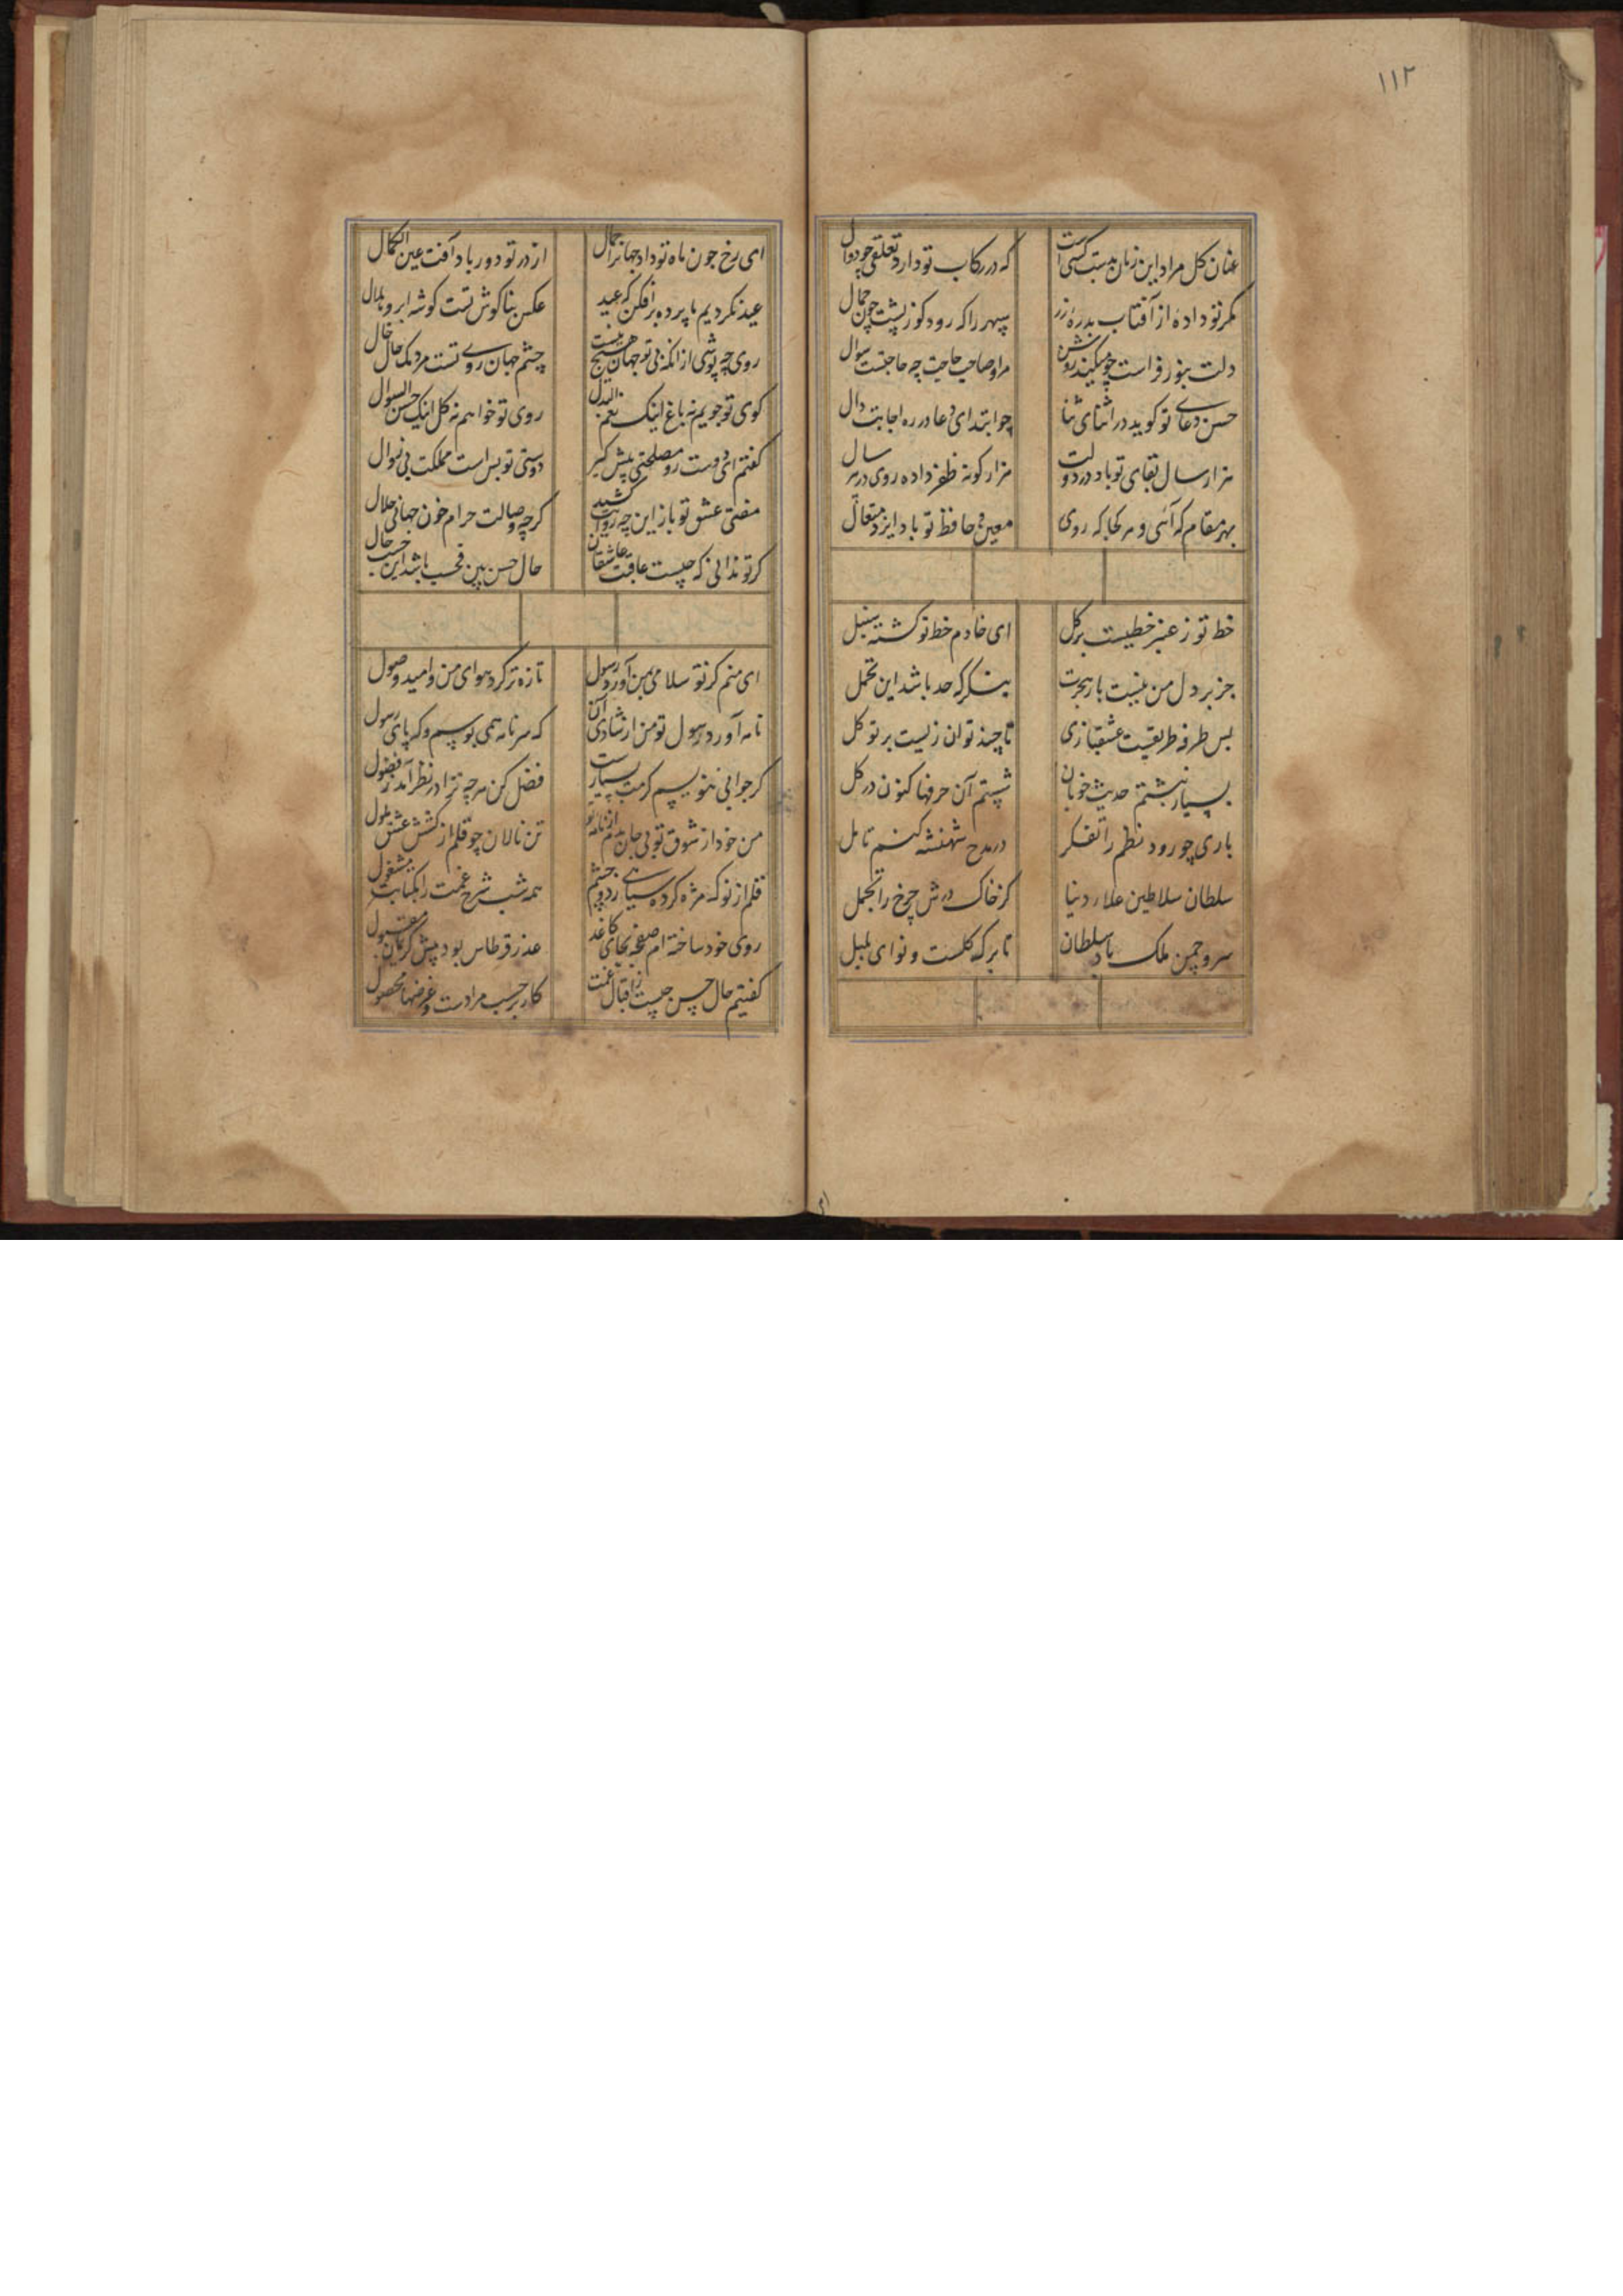 ۱۱۲
عنان کل مراد این زمان بدست کسی است
که در رکاب تو دارد تعلقی چو دوال
مکر تو داده از آفتاب بدره زر
سپهر را که رود کوز پشت چون جمال
دلت بنور فراست چو میکند روشن
مراد صاحب حاجت چه حاجتست سوال
حسن دعای تو کوید در اثنای ثنا
چو ابتدای دعا در ره اجابت دال
هزار سال بقای تو باد در دولت
هزار کونه ظفر داده روی در هر سال
بهر مقام که آئی و هر کجا که روی
معین و حافظ تو باد ایزد متعال
خط تو ز عنبر خطیست بر کل
ای خادم خط تو کشته سنبل
جز بر دل من نیست بار هجرت
بنکر که چه حد باشد این تحمل
بس طرفه طریقیست عشقبازی
تا چند توان زیست بر توکل
بسیار نبشتم حدیث خوبان
شستم آن حرفها کنون در کل
باری چو رود نظم را تفکر
در مدح شهنشه کنم تامل
سلطان سلاطین علاء دنیا
کز خاک درش چرخ را تجمل
سرو چمن ملک باد سلطان
تا برکه کلست و نوای بلبل
ای رخ چون ماه تو داد جهانرا جمال
از در تو دور باد آفت عین الکمال
عید نکردیم ما پرده بر افکن که عید
عکس بناکوش تست کوشه ابرو هلال
روی چه پوشی از انکه بی تو جهان هیچ نیست
چشم جهان روی تست مردمک حال خال
کوی تو جویم نه باغ اینک نعم البدل
روی تو خواهم نه کل اینک حسن السوال
کفتم ای دوست رو مصلحتی پیش کیر
دوستی تو بس است مملکت بی زوال
مفتی عشق تو باز این چه روایت کشید
کرچه وصالت حرام خون جهانی حلال
کر تو ندانی که چیست عاقبت عاشقان
حال حسن بین فحسب باشد این حسب حال
ای منم کز تو سلامی بمن آورد رسول
تازه تر کرد هوای من و امید وصول
نامه آورد رسول تو من از شادی آن
که سر نامه همی بوسم و که پای رسول
کر جوابی ننویسم کرمت بسیارست
فضل کن هر چه ترا در نظر آمد ز فضول
من خود از شوق تو بی جان شدم از نامه تو
تن نالان چو قلم از کشش عشق ملول
قلم از نوک مژه کرده سیاهی ز دو چشم
همه شب شرح غمت را بکتابت مشغول
روی خود ساخته ام صفحه بجای کاغد
عذر قرطاس بود پیش کریمان مقبول
کفتیم حال حسن چیست ز اقبال غمت
کار بر حسب مرادست و غرضها محصول